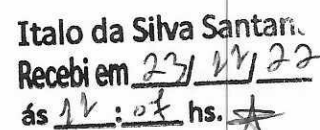 Italo da Silva Santan
Recebi em 23/ 11/ 22
ás 11 : 07 hs.